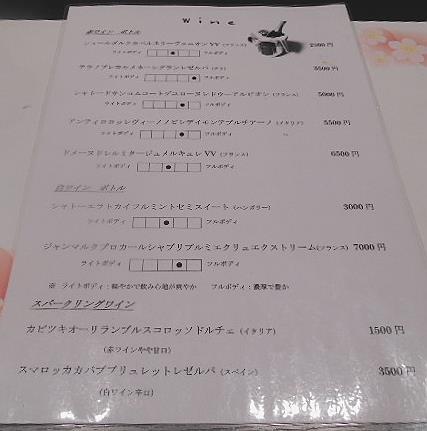 Wine
赤ワイン ボトル
シュールダルクカベルネソーヴィニオンVV (フランス) 2500円
ライトボディ フルボディ
テラノブレカルメネールグランレゼルバ (チリ) 3500円
ライトボディ フルボディ
シャトードサンコムコートデュローヌ (フランス) 5000円
ライトボディ フルボディ
アンティコロッソヴィーノノビレディモンテプルチアーノ (イタリア) 5500円
ライトボディ フルボディ
ドメーヌドレルミタージュメルキュレVV (フランス) 6500円
ライトボディ フルボディ
白ワイン ボトル
シャトーエラトカイフルミントセミスイート (ハンガリー) 3000円
ライトボディ フルボディ
ジャンマルクブロカールシャブリプルミエクリュエクストリーム (フランス) 7000円
ライトボディ フルボディ
※ ライトボディ:軽やかで飲み心地が爽やか フルボディ:濃厚で豊か
スパークリングワイン
カビツキオーリランブルスコロッソドルチェ (イタリア) 1500円
(赤ワインやや甘口)
スマロッカカバブリュレットレゼルバ (スペイン) 3500円
(白ワイン辛口)